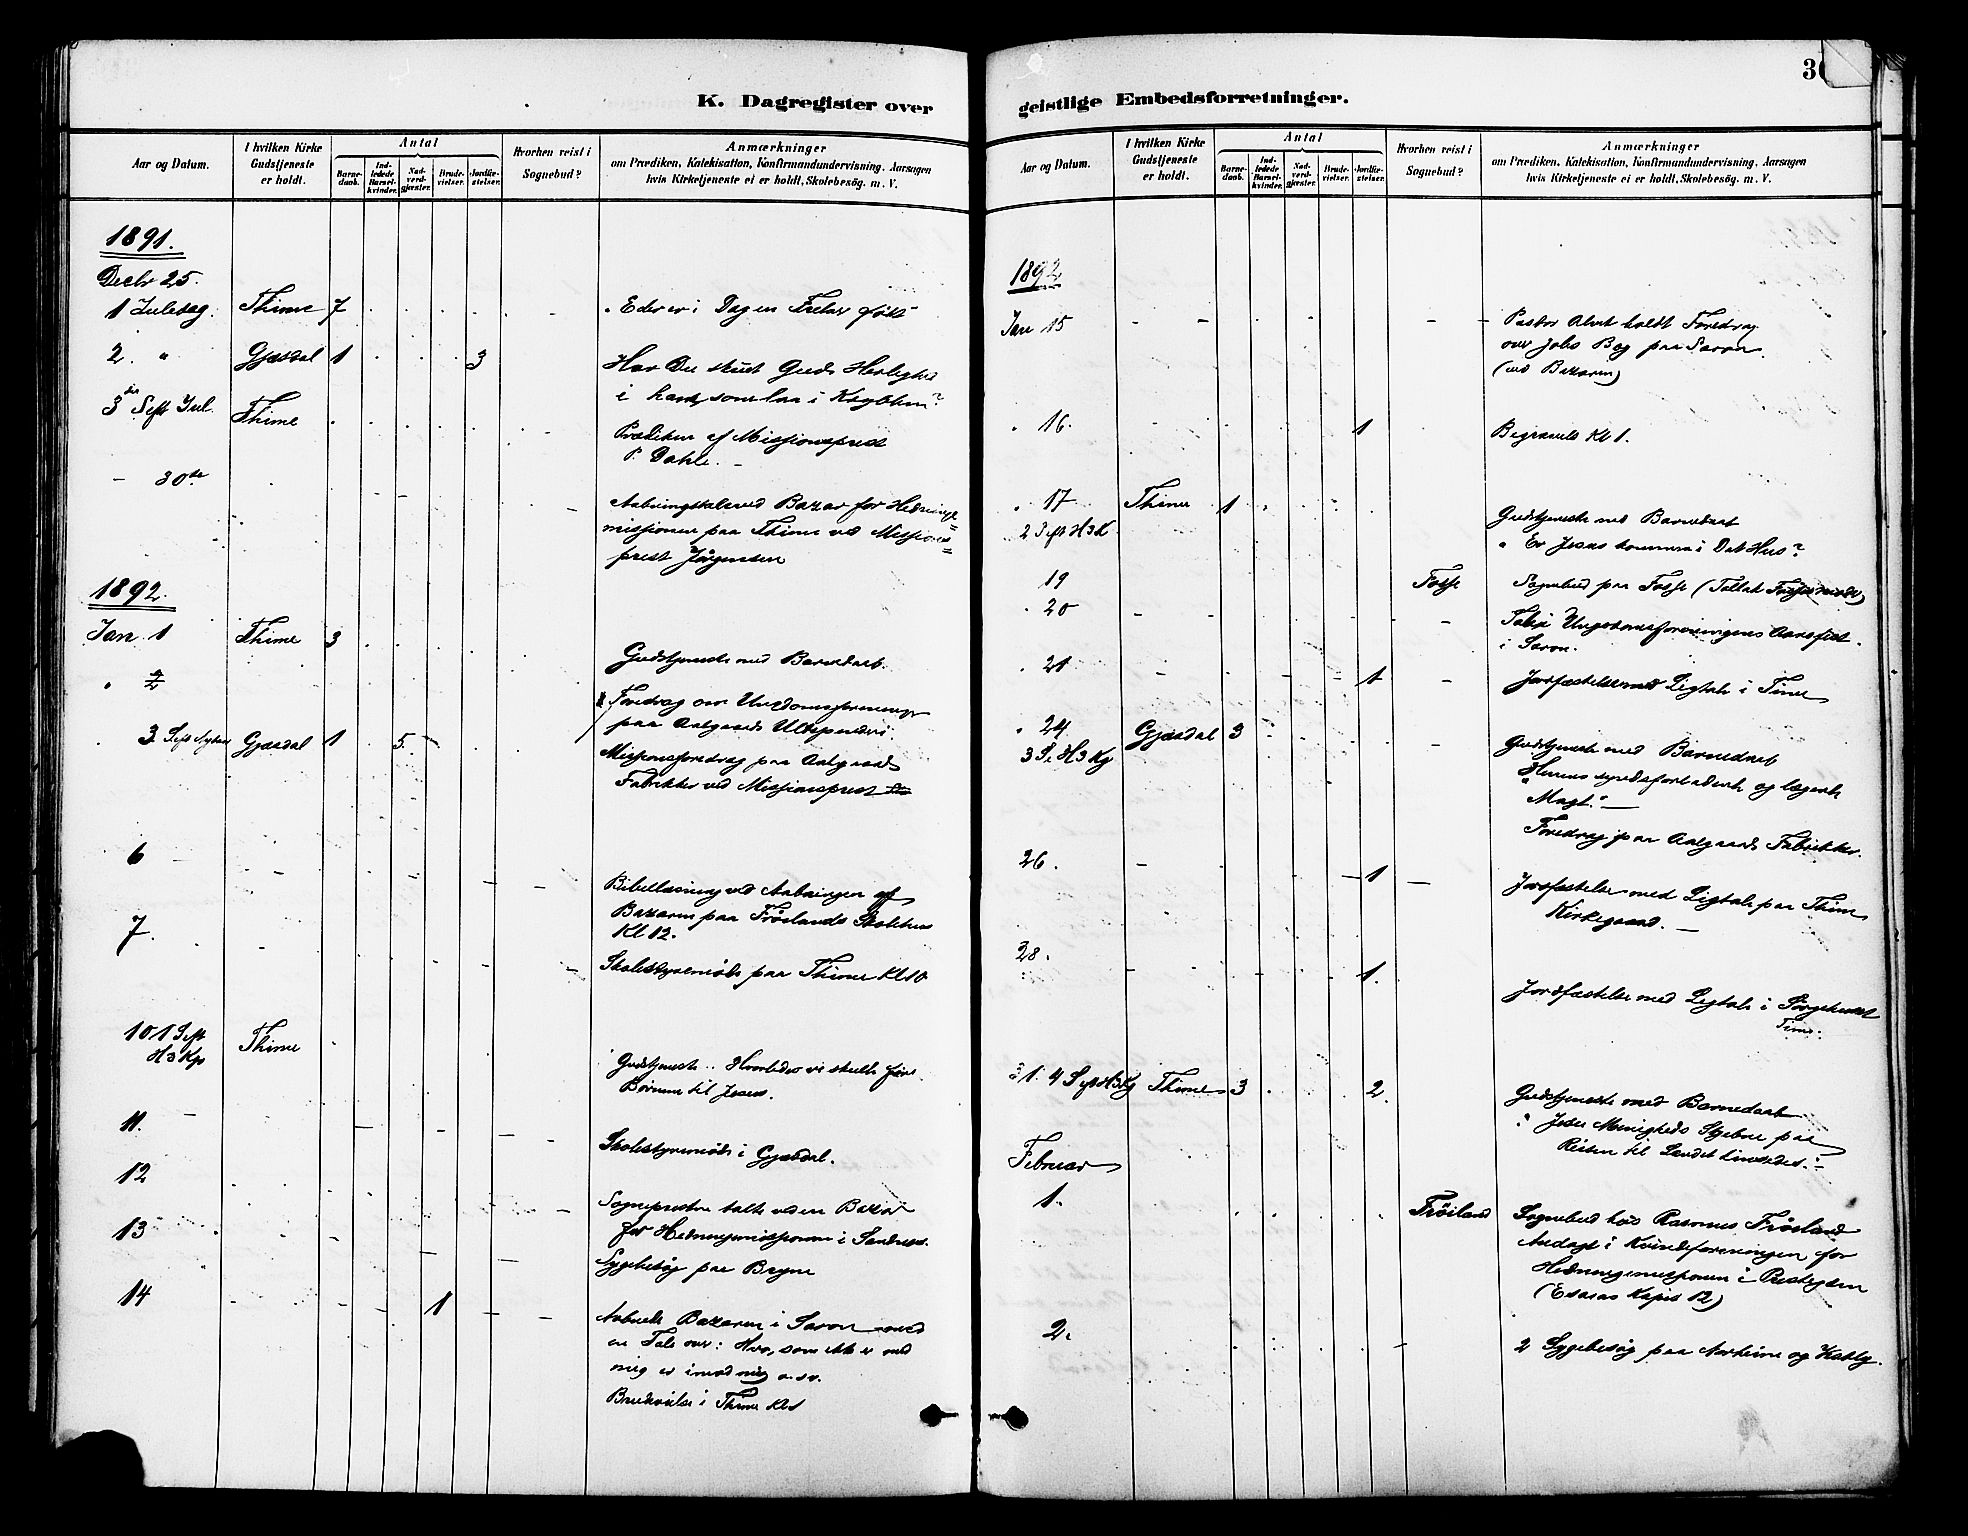 K. Dagregister over
Aar og Datum.
I hvilken Kirke Gudstjeneste er holdt.
Antal
Barne-daab.
Ind-ledede Barsel-kvinder.
Nad-verd-gjester.
Brude-vielser.
Jordfæ-stelser.
Hvorhen reist i Sognebud?
Anmærkninger
om Prædiken, Katekisation, Konfirmandundervisning, Aarsagen
hvis Kirketjeneste ei er holdt, Skolebesøg. m. V.
1891.
Decbr 25.
1 Juledag. Thime 7 Eder er i Dag en Frelser født
2. " Gjæsdal 1 3 Har Du skuet Guds Herlighed
i ham, som laa i Krybben?
3 Jul. Thime Prædiken af Missionsprest
P. Dahle. -
- 30te Aabningstale ved Bazar for Hednings=
missionen paa Thime ved Missions=
prest Jørgensen
1892.
Jan 1 Thime 3 Gudstjeneste med Barnedaab.
" 2 Foredrag om Ungdomsforeninger
paa Aalgaards
3 Gjæsdal 1 5. Missionsforedrag paa Aalgaards
Fabrikker ved Missionsprest
6 Bibellæsning ved Aabningen af
Bazaren paa Frøilands Skolehus
Kl 12.
7. Skolestyremøde paa Thime Kl 10
10 1 Thime Gudstjeneste. Hvorledes vi skulle føre
H 3 Kg Børnene til Jesus.
11. Skolestyremøde i Gjæsdal.
12 Sognepresten talte ved en Bazar
for Hedningemissionen i Sandnes.
13 Sygebesøg paa Bryne
14 1 Aabnede Bazaren i Saron med
en Tale over: Hver, som ikke er med
mig er imod mig o. s. v.
Brudevielse i Thime Kl
geistlige Embedsforretninger.
Aar og Datum.
I hvilken Kirke Gudstjeneste er holdt.
Antal
Barne-daab.
Ind-ledede Barsel-kvinder.
Nad-verd-gjester.
Brude-vielser.
Jordfæ-stelser.
Hvorhen reist i Sognebud?
Anmærkninger
om Prædiken, Katekisation, Konfirmandundervisning, Aarsagen
hvis Kirketjeneste ei er holdt, Skolebesøg. m. V.
1892
Jan 15 Pastor holdt Foredrag
over Jobs Bog paa Saron
(ved Bazaren)
" 16. 1 Begravelse Kl 1.
" 17 Thime 1 Gudstjeneste med Barnedaab
2 H3K " Er Jesus kommen i Dit Hus?
19 Fosse Sognebud paa Fosse
" 20 Ungdomsforeningens Aarsfest
i Saron.
" 21 1 Jordfæstelse med Ligtale i Time
" 24 Gjæsdal 3 Gudstjeneste med Barnedaab
3 S H3Kg Herrens syndsforladende og lægende
Magt." -
Foredrag paa Aalgaards Fabrikker.
26. 1 Jordfæstelse med Ligtale paa Thime
Kirkegaard. -
28. 1. Jordfæstelse med Ligtale i Sørgehuset
Time.
31. 4 H3Kg Thime 3 2. Gudstjeneste med Barnedaab
" Jesu Menigheds Skjebne paa
Reisen til Landet hinsides." -
Februar
1. Frøiland Sognebud hos Rasmus Frøiland
Andagt i Kvindeforeningen for
Hedningemissionen i Prestegaarden
(Esaias Kapit 12)
2. 2 Sygebesøg paa og